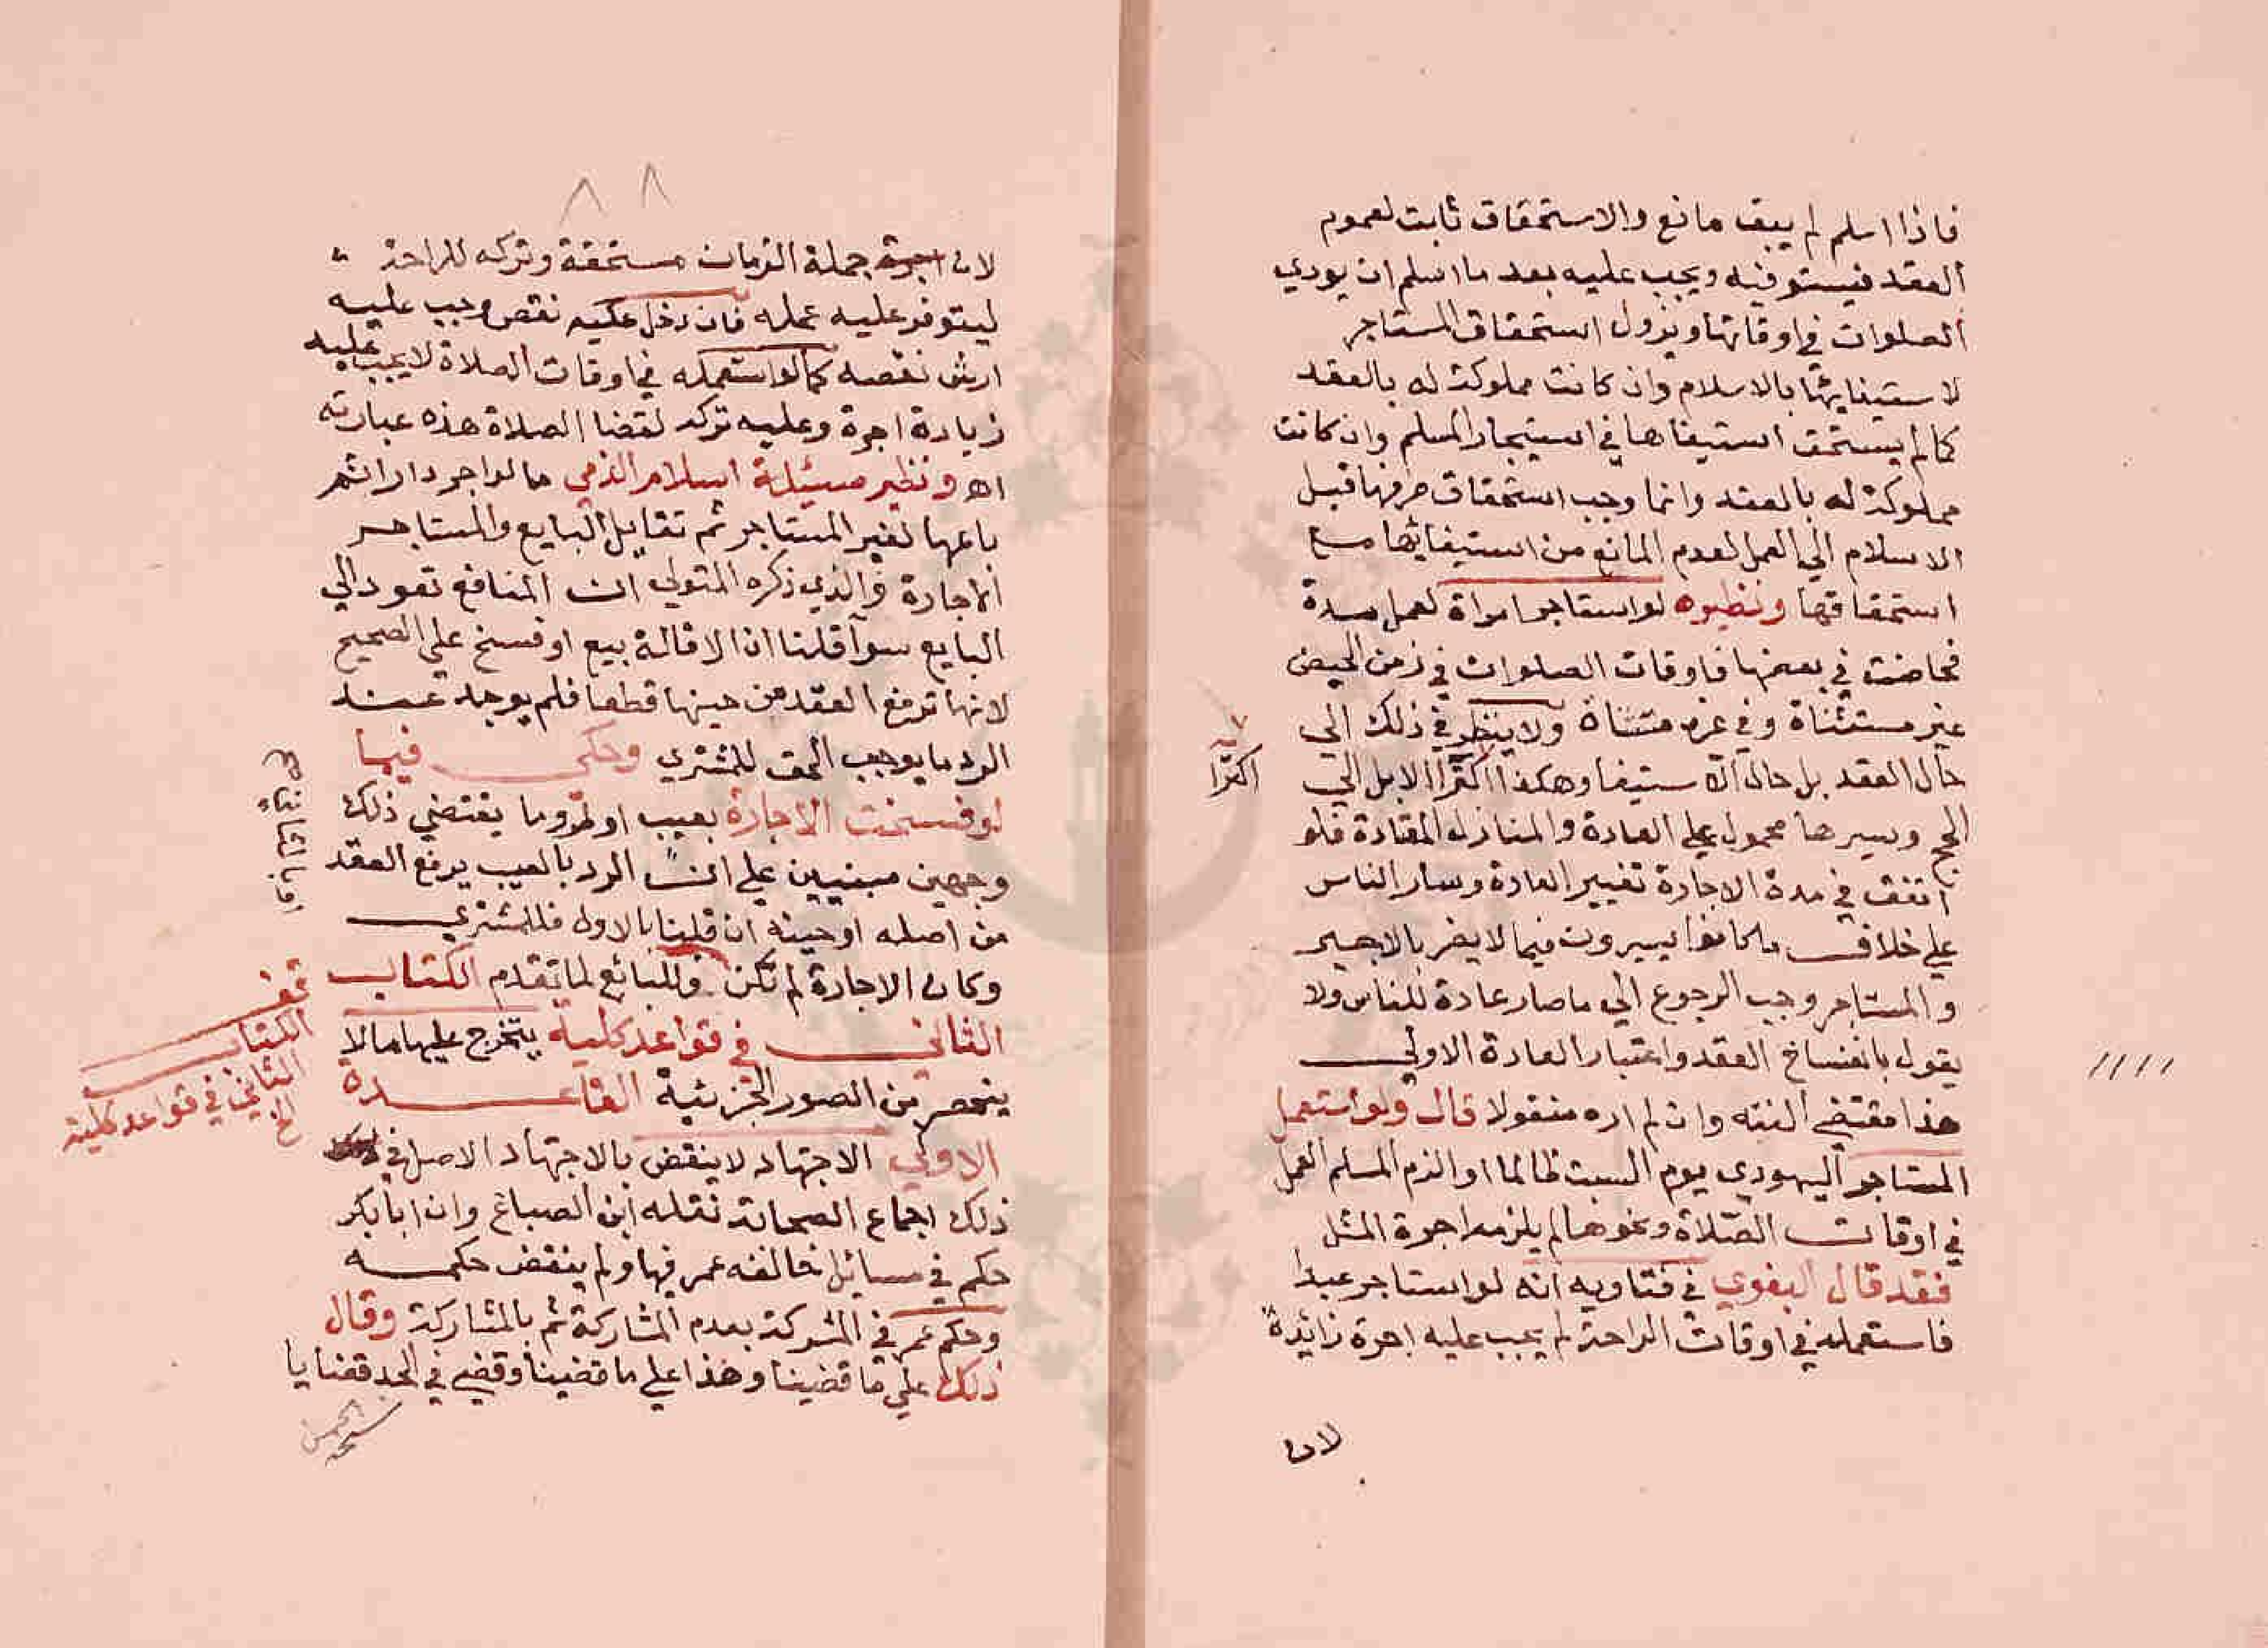 فاذا اسلم لم يبق مانع والاستحقاق ثابت لعموم
العقد فيستوفيه ويجب عليه بعد ما اسلم ان يودي
الصلوات في اوقاتها ويزول استحقاق المستاجر
لاستيفايها بالاسلام وان كانت مملوكة له بالعقد
كما لم يستحق استيفاها في استيجار المسلم وان كانت
مملوكة له بالعقد وانما وجب استحقاق صرفها قبل
الاسلام الي العمل لعدم المانع من استيفائها مع
استحقاقها ونظيره لو استاجر امراة لعمل مدة
فحاضت في بعضها فاوقات الصلوات في زمن الحيض
غير مستثناة وفي غيره مستثناة ولا ينظر في ذلك الي
حال العقد بل حال الاستيفا وهكذا اكترا الابل الي
اكترا
الحج وسيرها محمول علي العادة والمنازل المعتادة فلو
اتفق في مدة الاجارة تغيير العادة وسار الناس
علي خلاف ما كانوا يسيرون فيما لا يضر بالاجير
والمستاجر وجب الرجوع الي ما صار عادة للناس ولا
يقول بانفساخ العقد واعتبار العادة الاولي
هذا مقتضي الفقه وان لم اره منقولا قال ولو استعمل
المستاجر اليهودي يوم السبت ظالما او الزم المسلم العمل
في اوقات الصلاة ونحوها لم يلزمه اجرة المثل
فقد قال البغوي في فتاويه انه لو استاجر عبدا
فاستعمله في اوقات الراحة لم يجب عليه اجرة زائدة
لان
٨٨
لان اجرة جملة الزمان مستحقة وتركه للراحة
ليتوفر عليه عمله فان دخل عليه نقص وجب عليه
ارش نقصه كما لو استعمله في اوقات الصلاة لا يجب عليه
زيادة اجرة وعليه تركه لقضا الصلاة هذه عبارته
اه ونظير مسئلة اسلام الذمي ما لو اجر دارا ثم
باعها لغير المستاجر ثم تقايل البايع والمستاجر
الاجارة والذي ذكره المتولي ان المنافع تعود الي
البايع سوآ قلنا ان الاقالة بيع او فسخ علي الصحيح
لانها ترفع العقد من حينها قطعا فلم يوجد عند
الرد ما يوجب الحق للمشتري وحكي فيما
لو فسخت الاجارة بعيب او طرو ما يقتضي ذلك
وجهين مبنيين علي ان الرد بالعيب يرفع العقد
من اصله او حينه ان قلنا بالاول فللمشتري
وكان الاجارة لم تكن وللبائع لما تقدم الكتاب
الثاني في قواعد كلية يتخرج عليها ما لا
ينحصر من الصور الجزئية القاعدة
الاولي الاجتهاد لا ينقض بالاجتهاد الاصل في
ذلك اجماع الصحابة نقله ابن الصباغ وان ابا بكر
حكم في مسائل خالفه عمر فيها ولم ينقض حكمه
وحكم عمر في المشركة بعدم المشاركة ثم بالمشاركة وقال
ذلك علي ما قضينا وهذا علي ما قضينا وقضي في الجد قضايا
قف
الكتاب
الثاني في قواعد كلية
الخ